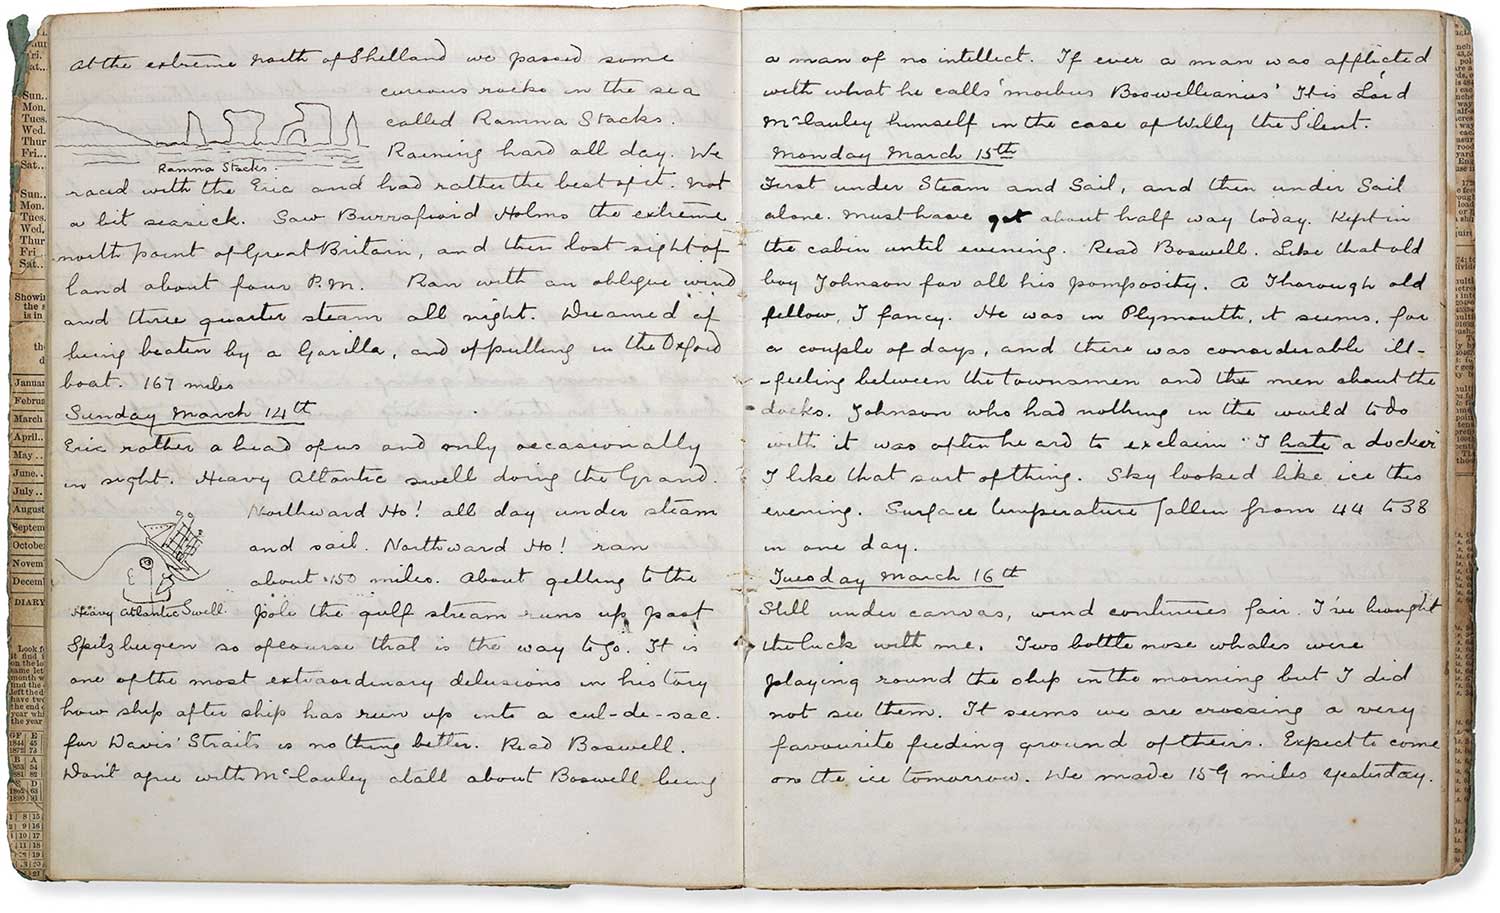 At the extreme north of Shetland we passed some
curious rocks in the sea
called Ramna Stacks.
Ramna Stacks.
Raining hard all day. We
raced with the Eric and had rather the best of it. Not
a bit seasick. Saw Burrafiord Holms the extreme
north point of Great Britain, and then lost sight of
land about four P.M. Ran with an oblique wind
and three quarter steam all night. Dreamed of
being beaten by a Gorilla, and of pulling in the Oxford
boat. 167 miles
Sunday March 14th
Eric rather ahead of us and only occasionally
in sight. Heavy Atlantic swell doing the Grand.
Northward Ho! all day under steam
and sail. Northward Ho! ran
about 150 miles. About getting to the
Heavy Atlantic Swell.
Pole the gulf stream runs up past
Spitzbergen so of course that is the way to go. It is
one of the most extraordinary delusions in history
how ship after ship has run up into a cul-de-sac.
for Davis' Straits is nothing better. Read Boswell.
Don't agree with McCauley atall about Boswell being
a man of no intellect. If ever a man was afflicted
with what he calls 'morbus Boswellianus' it is Lord
McCauley himself in the case of Willy the Silent.
Monday March 15th
First under Steam and Sail, and then under Sail
alone. Must have got about half way today. Kept in
the cabin until evening. Read Boswell. Like that old
boy Johnson for all his pomposity. A Thorough old
fellow, I fancy. He was in Plymouth, it seems, for
a couple of days, and there was considerable ill-
-feeling between the townsmen and the men about the
docks. Johnson who had nothing in the world to do
with it was often heard to exclaim "I hate a docker"
I like that sort of thing. Sky looked like ice this
evening. Surface temperature fallen from 44 to 38
in one day.
Tuesday March 16th
Still under canvas, wind continues fair. I've brought
the luck with me. Two bottle nose whales were
playing round the ship in the morning but I did
not see them. It seems we are crossing a very
favourite feeding ground of theirs. Expect to come
on the ice tomorrow. We made 159 miles yesterday.